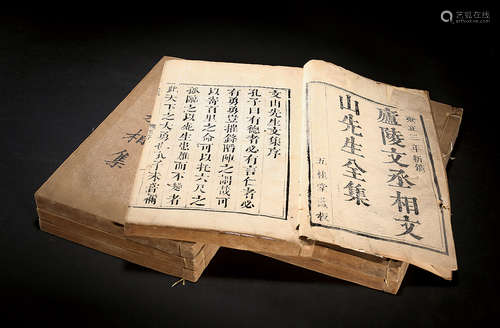 雍正三年新鐫
廬陵文丞相文
山先生全集
五桂堂藏板
文山先生文集序
孔子曰有德者必有言仁者必
有勇勇豈摧鋒陷陣之謂哉可
以寄百里之命可以托六尺之
孤臨之以死生患難而不易者
此天下之大勇也孔子未嘗
相集
艺狐在线
artfoxlive.com